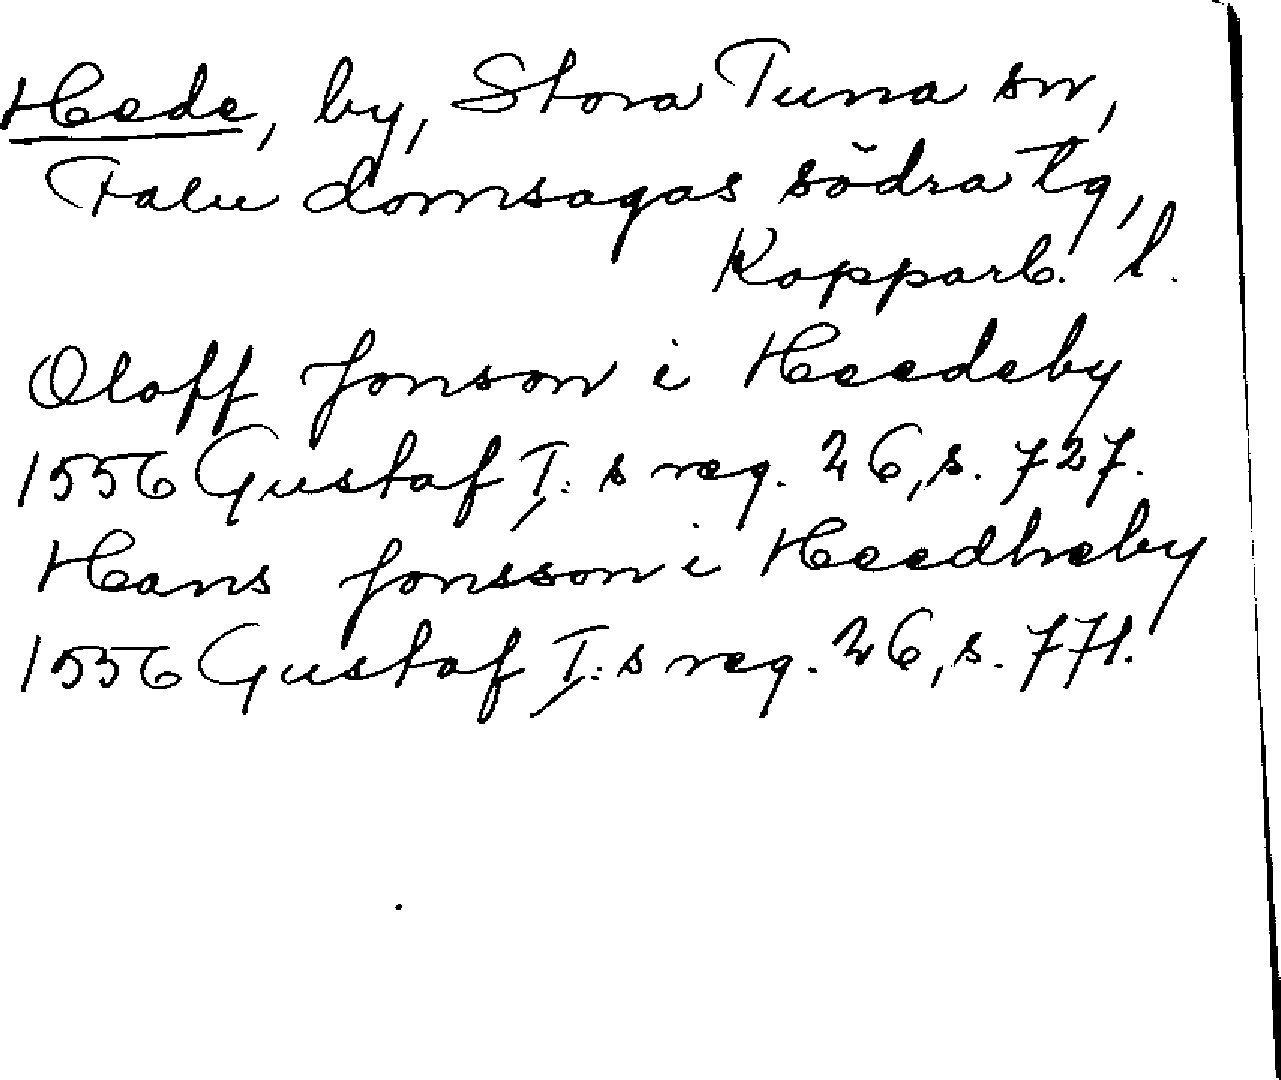 Hede, by, Stora Tuna sn,
Falu domsagas södra tg,
Kopparb. l.
Oloff Jonson i Heedeby
1556 Gustaf I:s reg. 26, s. 727.
Hans Jonsson i Heedheby
1556 Gustaf I:s reg. 26, s. 771.